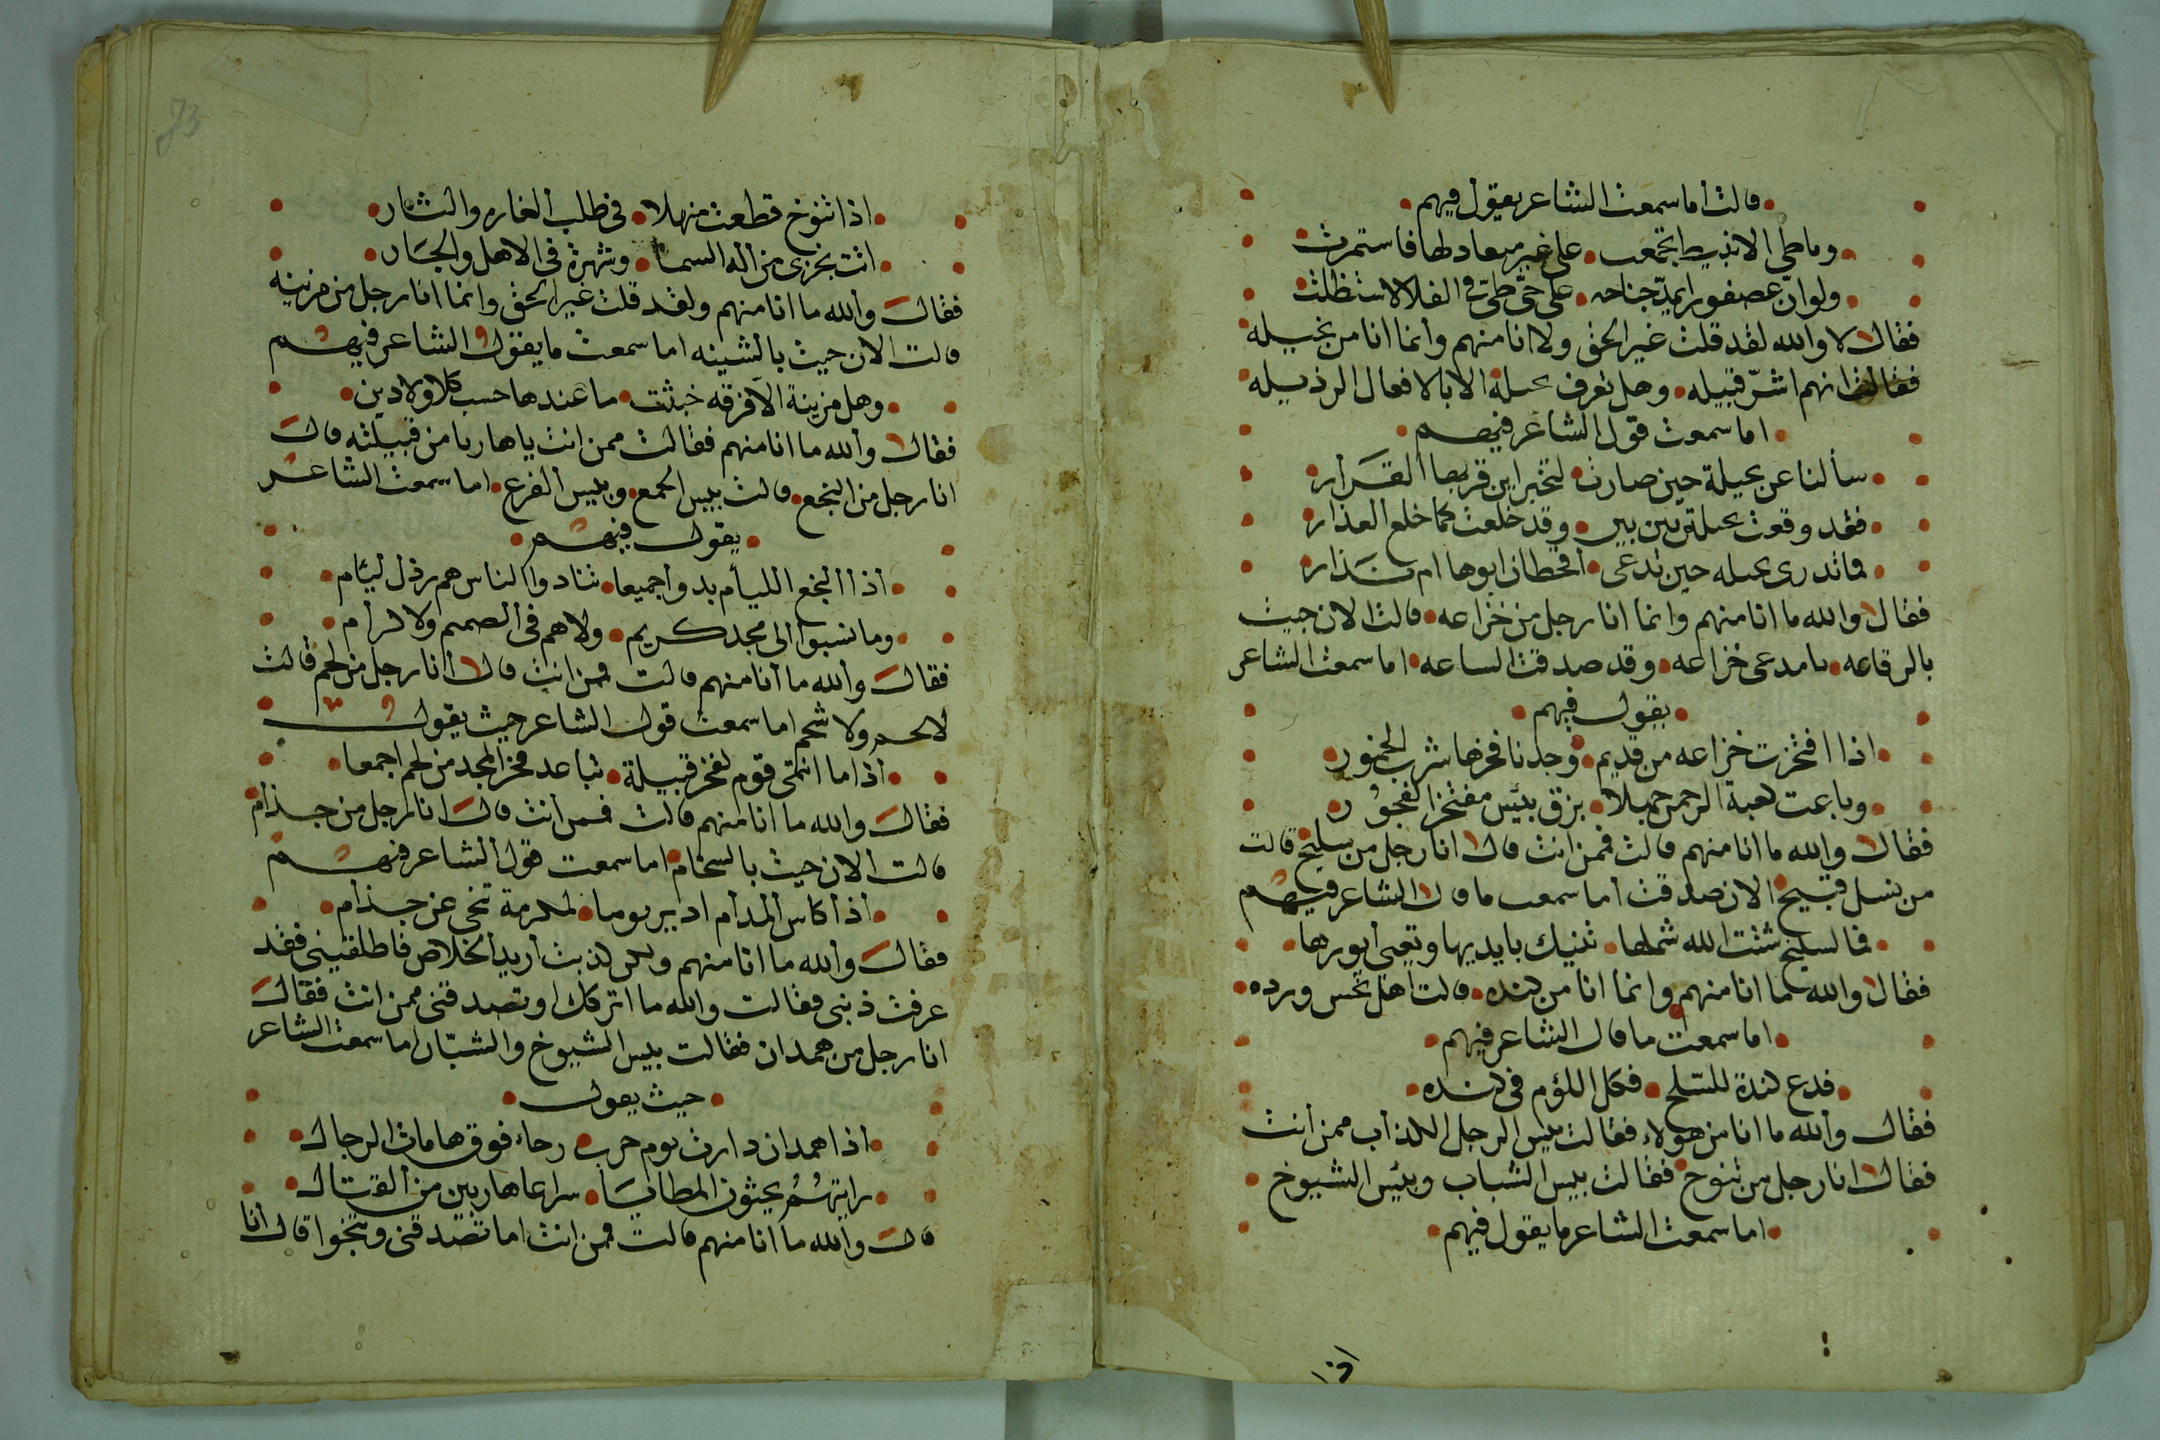 قالت أما سمعت الشاعر يقول فيهم
وما طى الا نبيط تجمعت على غير ميعاد لها فاستمرت
ولو ان عصفورا يمد جناحه على حى طى فى الفلا لاستظلت
فقال لا والله لقد قلت غير الحق ولا انا منهم وانما انا من بجيله
فقالت انهم اشر قبيله وهل تعرف بجيلة الا بالافعال الرذيله
اما سمعت قول الشاعر فيهم
سألنا عن بجيلة حين صارت لتخبر اين قر بها القرار
فقد وقعت بجيلة بين بين وقد خلعت كما خلع العذار
فما تدرى بجيله حين تدعى أقحطان ابوها ام نذار
فقال والله ما انا منهم وانما انا رجل من خزاعه قالت الان جيت
بالرقاعه يا مدعى خزاعه وقد صدقت الساعه اما سمعت الشاعر
يقول فيهم
اذا افتخرت خزاعه من قديم وجدنا فخرها شرب الخمور
وباعت كعبة الرحمن جهلا بزق بئس مفتخر الفجور
فقال والله ما انا منهم قالت فمن انت قال انا رجل من سليح قالت
من نسل قبيح الان صدقت أما سمعت ما قال الشاعر فيهم
فما لسليح شتت الله شملها تنيك بايديها وتعيى أيورها
فقال والله ما انا منهم وانما انا من كنده قالت اهل نحس ورده
اما سمعت ما قال الشاعر فيهم
فدع كندة للسلح فكل اللؤم فى كنده
فقال والله ما انا من هولاء فقالت بيس الرجل الكذاب ممن أنت
فقال انا رجل من تنوخ فقالت بيس الشباب وبئس الشيوخ
اما سمعت الشاعر ما يقول فيهم
اذا
اذا تنوخ قطعت منهلا فى طلب الغاره والثار
اتت بخزى من اله السما وشهرة فى الاهل والجار
فقال والله ما انا منهم ولقد قلت غير الحق وانما انا رجل من مزينه
قالت الان جيت بالشينه اما سمعت ما يقول الشاعر فيهم
وهل مزينة الا فرقه خبثت ما عندها حسب كلا ولا دين
فقال والله ما انا منهم فقالت ممن انت يا هاربا من قبيلته قال
انا رجل من النخع قالت بيس الجمع وبيس الفزع اما سمعت الشاعر
يقول فيهم
أذا النخع الليام بدوا جميعا تنادوا الناس هم رذل ليئام
وما نسبوا الى مجد كريم ولا هم فى الصميم ولا كرام
فقال والله ما انا منهم قالت فمن انت قال أنا رجل من لخم قالت
لا لحم ولا شحم اما سمعت قول الشاعر حيث يقول
أذا ما انتمى قوم لفخر قبيلة تباعد فخر المجد من لخم اجمعا
فقال والله ما انا منهم قالت فمن أنت قال انا رجل من جذام
قالت الان جيت بالسخام اما سمعت قول الشاعر فيهم
أذا كاس المدام ادير يوما لمكرمة تنحى عن جذام
فقال والله ما انا منهم ولكن كذبت أريد الخلاص فاطلقينى فقد
عرفت ذنبى فقالت والله ما اتركك او تصدقنى ممن انت فقال
انا رجل من همدان فقالت بيس الشيوخ والشبّان اما سمعت الشاعر
حيث يقول
اذا همدان دارت يوم حرب رحاء فوق هامات الرجال
رايتهُمُ يحثون المطايا سراعا هاربين من القتال
قال والله ما انا منهم قالت فمن انت اما تصدقنى وتنجوا قال انا